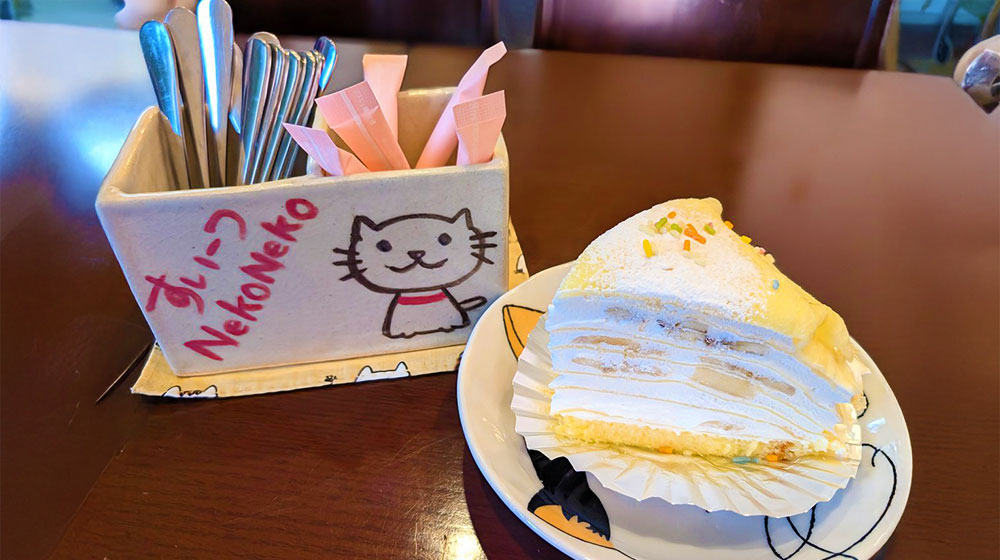 すいーつ
NekoNeko